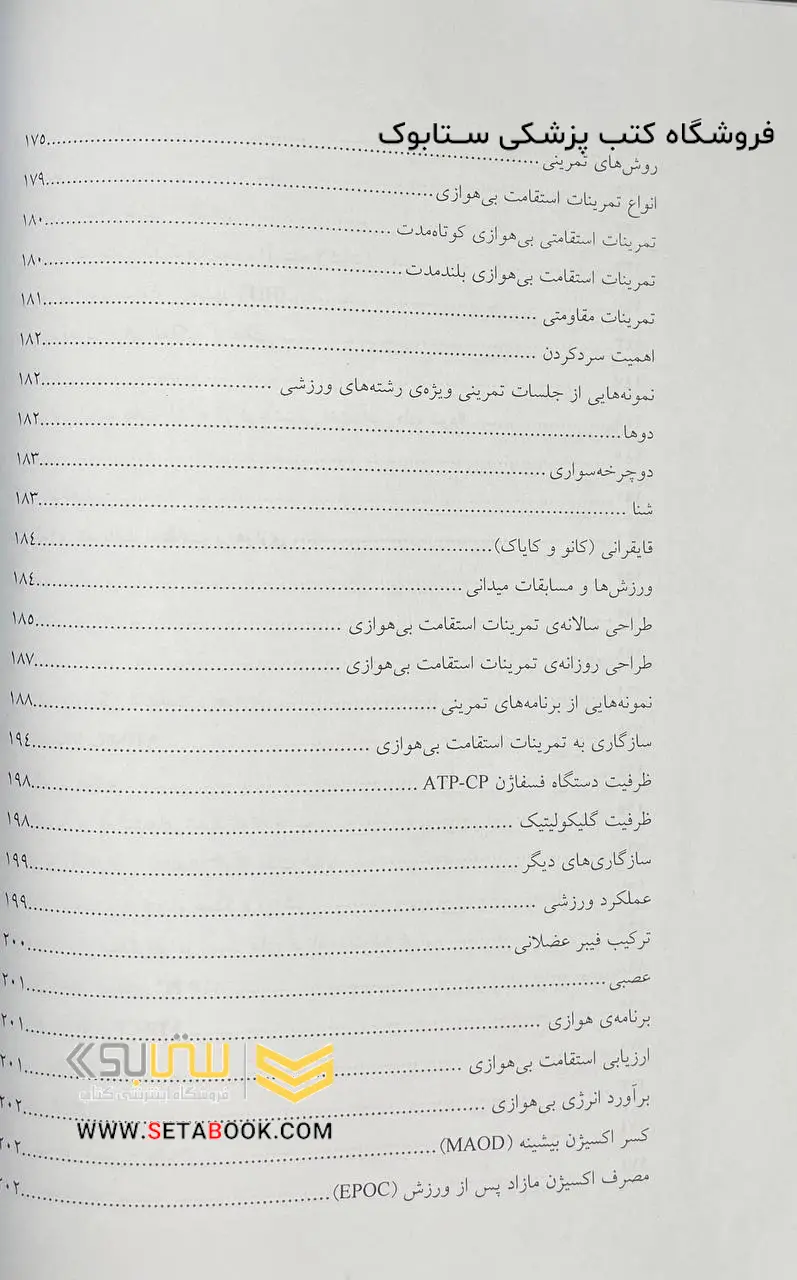 فروشگاه کتب پزشکی ستابوک
روش‌های تمرینی ۱۷۵
انواع تمرینات استقامت بی‌هوازی ۱۷۹
تمرینات استقامتی بی‌هوازی کوتاه‌مدت ۱۸۰
تمرینات استقامت بی‌هوازی بلندمدت ۱۸۰
تمرینات مقاومتی ۱۸۱
اهمیت سردکردن ۱۸۲
نمونه‌هایی از جلسات تمرینی ویژه‌ی رشته‌های ورزشی ۱۸۲
دوها ۱۸۲
دوچرخه‌سواری ۱۸۳
شنا ۱۸۳
قایقرانی (کانو و کایاک) ۱۸۴
ورزش‌ها و مسابقات میدانی ۱۸۴
طراحی سالانه‌ی تمرینات استقامت بی‌هوازی ۱۸۵
طراحی روزانه‌ی تمرینات استقامت بی‌هوازی ۱۸۷
نمونه‌هایی از برنامه‌های تمرینی ۱۸۸
سازگاری به تمرینات استقامت بی‌هوازی ۱۹٤
ظرفیت دستگاه فسفاژن ATP-CP ۱۹۸
ظرفیت گلیکولیتیک ۱۹۸
سازگاری‌های دیگر ۱۹۹
عملکرد ورزشی ۱۹۹
ترکیب فیبر عضلانی ۲۰۰
عصبی ۲۰۱
برنامه‌ی هوازی ۲۰۱
ارزیابی استقامت بی‌هوازی ۲۰۱
برآورد انرژی بی‌هوازی ۲۰۲
کسر اکسیژن بیشینه (MAOD) ۲۰۲
مصرف اکسیژن مازاد پس از ورزش (EPOC) ۲۰۲
ستابوک
فروشگاه اینترنتی کتاب
WWW.SETABOOK.COM